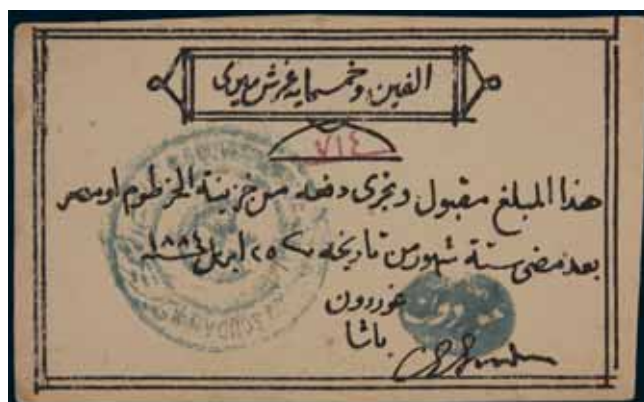 الفين وخمسماية غرش ميرى
٧١٤
هذا المبلغ مقبول ويجرى دفعه من خزينة الخرطوم او مصر
بعد مضى ستة شهور من تاريخه ٢٥ ابريل ١٨٨٤ سنة
غوردون
باشا
SOUDAN